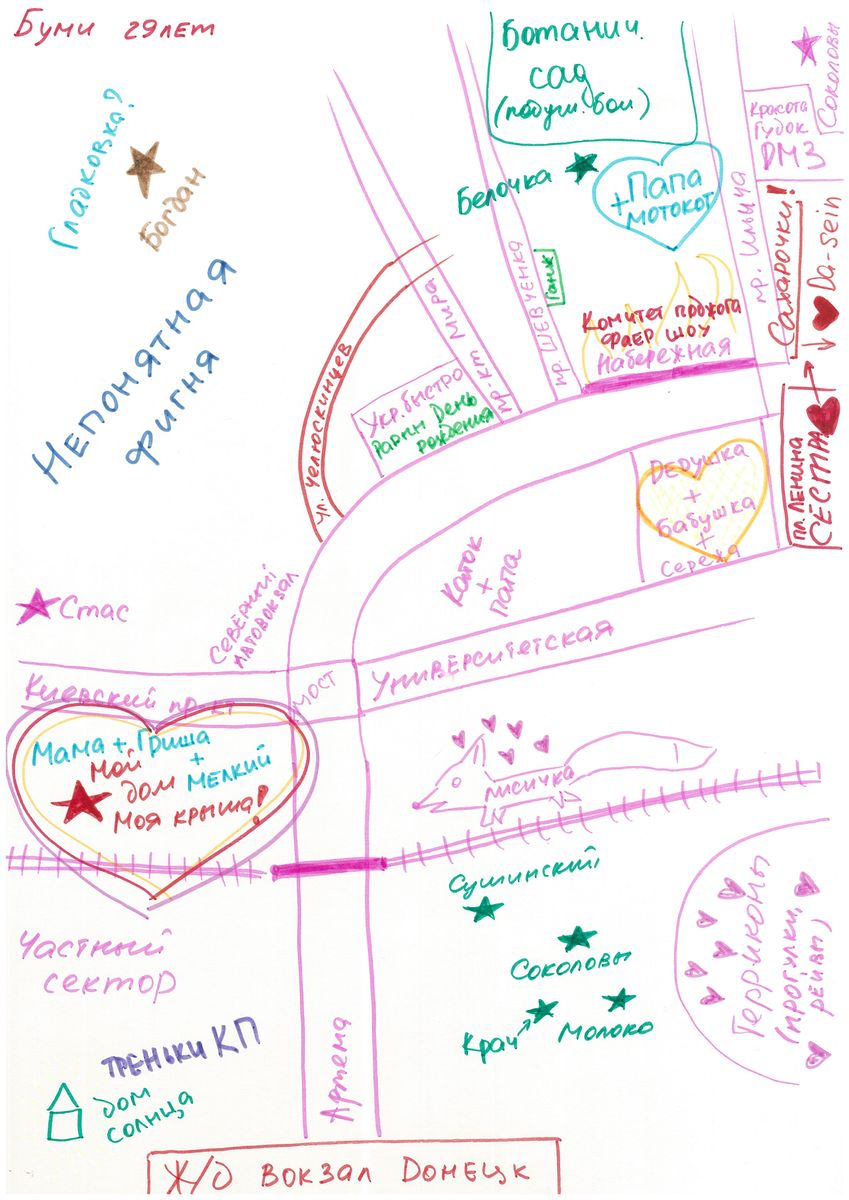 Буми 29 лет
Ботанич.
сад
(подуш. бои)
Соколовы
Красота
Гудок
DМЗ
Гладковка?
Богдан
Белочка
+Папа
мотокот
пр. Ильича
Сахарочки!
Da-sein
Непонятная
фигня
ул. Челюскинцев
пр-кт Мира
пр. Шевченка
Ганж
Комитет поджога
фаер шоу
Набережная
Укр.быстро
День
рождения
пл. Ленина
СЕСТРА
Дедушка
+
Бабушка
+
Сережа
Каток
+
папа
Северный
автовокзал
Стас
Киевский пр-кт
мост
Университетская
Мама + Гриша
+
мелкий
Мой
дом
Моя крыша!
лисичка
Сушинский
Соколовы
Крач
Молоко
Терриконы
(прогулки,
рейвы)
Частный
сектор
Треньки КП
дом
солнца
Артема
Ж/D вокзал Донецк